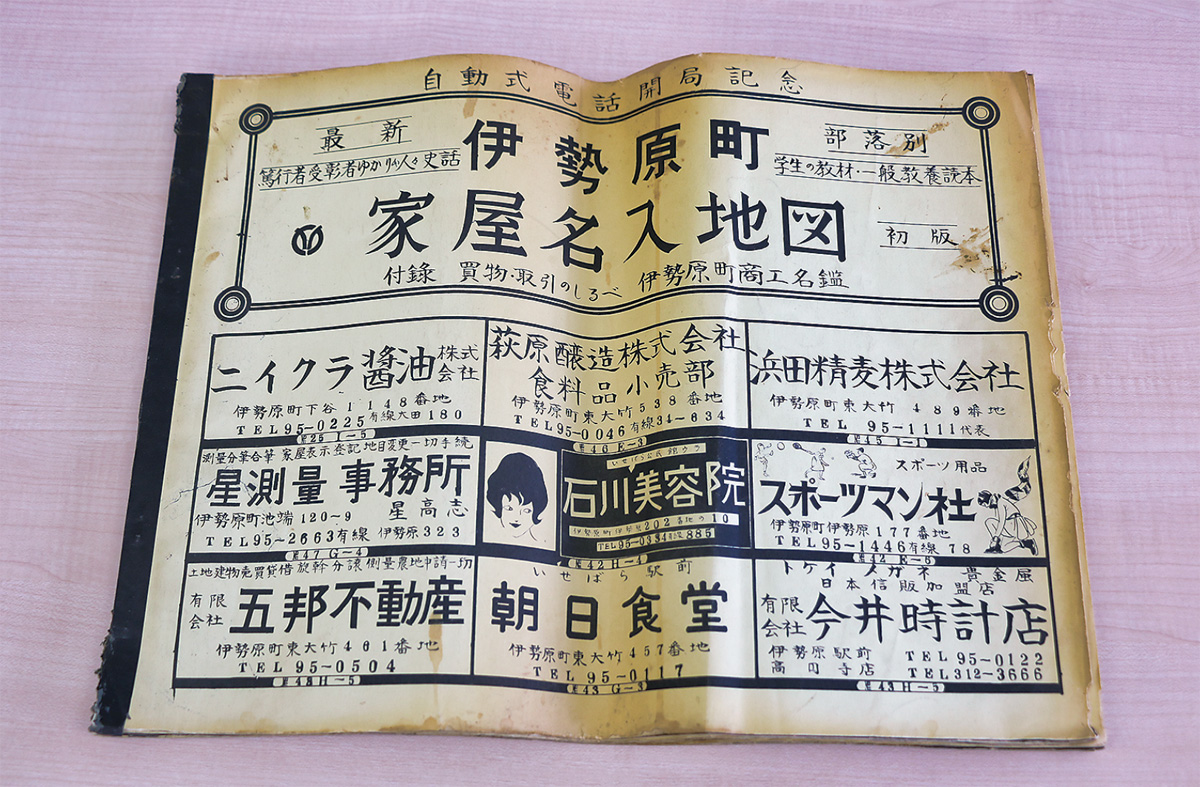 自動式電話開局記念
最新
伊勢原町
部落別
篤行者受彰者ゆかりの人々史話
学生の教材・一般教養読本
家屋名入地図
初版
付録 買物・取引のしるべ 伊勢原町商工名鑑
ニイクラ醬油株式会社
伊勢原町下谷1148番地
TEL95-0225有線大田180
萩原醸造株式会社
食料品小売部
伊勢原町東大竹538番地
TEL95-0046有線34~634
№46 E-3
浜田精麦株式会社
伊勢原町東大竹 489番地
TEL 95-1111代表
№45 I-1
測量分筆合筆 家屋表示登記地目変更一切手続
星測量事務所
星高志
伊勢原町池端120~9
TEL95-2663有線 伊勢原323
№47 G-4
石川美容院
TEL95-0334有線885
№42H-4
スポーツ用品
スポーツマン社
伊勢原町伊勢原177番地
TEL95-1446有線78
№42 E-5
土地建物売買貸借旋幹分譲測量農地申請一切
有限会社 五邦不動産
伊勢原町東大竹461番地
TEL95-0504
№48H-5
いせばら駅前
朝日食堂
伊勢原町東大竹457番地
TEL 95-0117
№43 G-3
トケイ メガネ 貴金属
日本信販加盟店
有限会社 今井時計店
伊勢原駅前 TEL95-0122
高円寺店 TEL312-3666
№43H-5